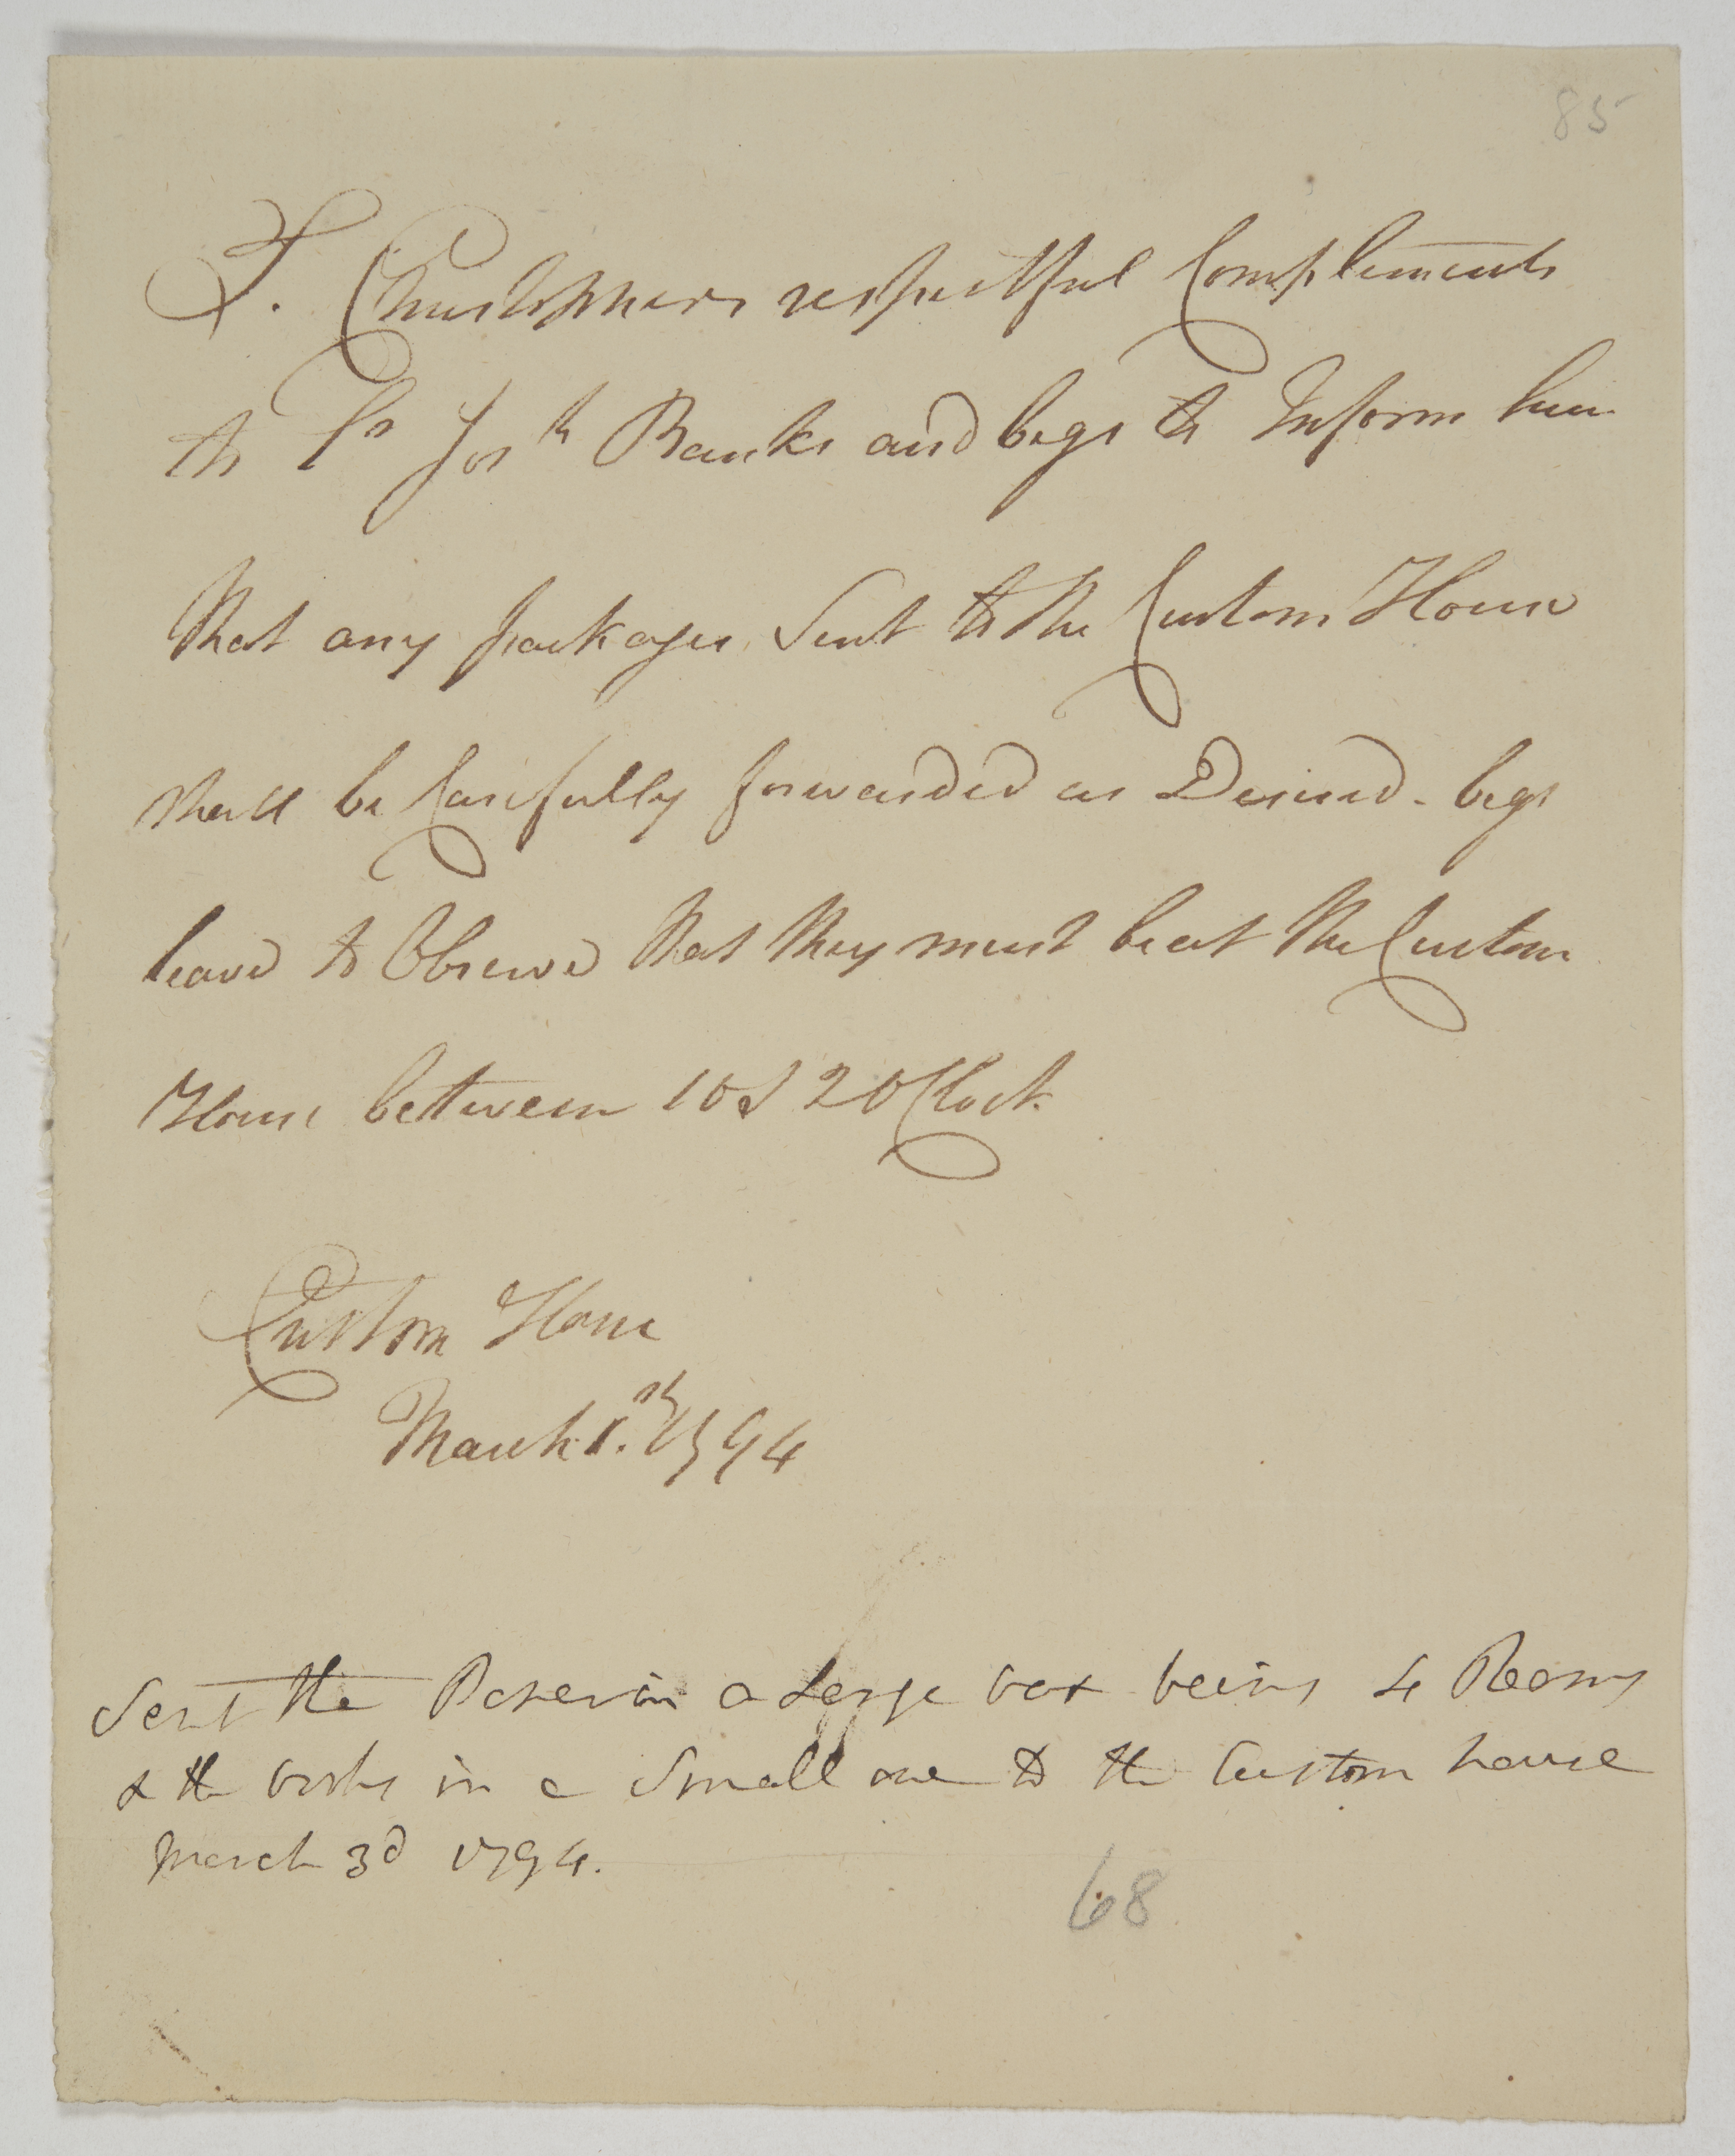 85
T. Christophers respectful Complements
to Sr Josh Banks and begs to Inform him
that any packages Sent to the Custom House
shall be Carefully forwarded as Desired. begs
leave to Observe that they must be at the Custom
House between 10 & 2 O Clock.
Custom House
March 1.th 1794
Sent the Paper in a Large box being 4 Reams
& the books in a Small one to the Custom house
March 3d 1794.
68